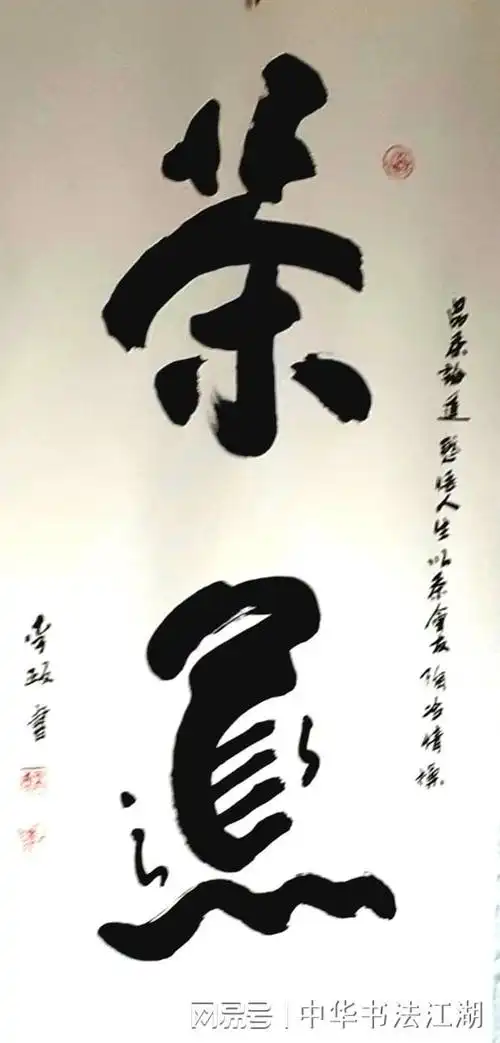 茶道
品茶論道 感悟人生 以茶會友 陶冶情操
李政書
网易号 | 中华书法江湖